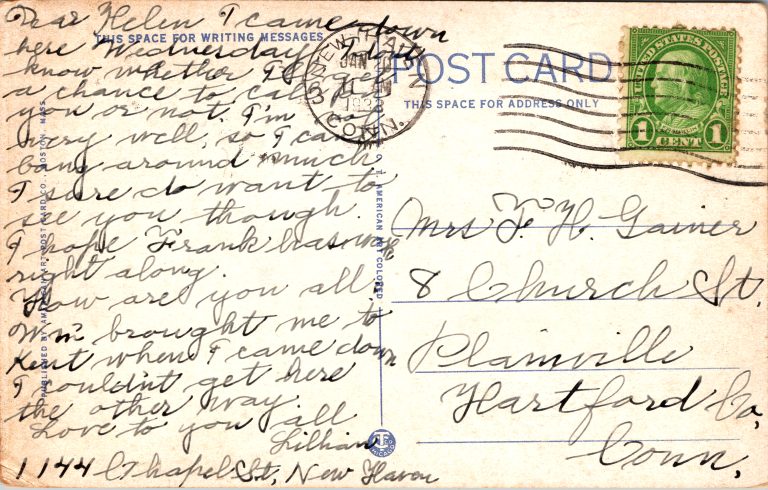 Dear Helen I came down
THIS SPACE FOR WRITING MESSAGES
here Wednesday I don't
know whether I'll get
a chance to call
you or not. I'm not
very well, so I can't
bang around much
I sure do want to
see you though.
I hope Frank has work
right along.
How are you all.
Wm brought me to
Kent when I came down
I couldn't get here
the other way.
Love to you all
Lillian
1144 Chapel St, New Haven
PUBLISHED BY AMERICAN ART POST CARD CO., BOSTON, MASS.
AMERICAN ART COLORED
NEW HAVEN
JAN
11
AM
CONN.
POST CARD
THIS SPACE FOR ADDRESS ONLY
UNITED STATES POSTAGE
FRANKLIN
1 CENT 1
Mrs F. H. Gainer
8 Church St.
Plainville
Hartford Co,
Conn,